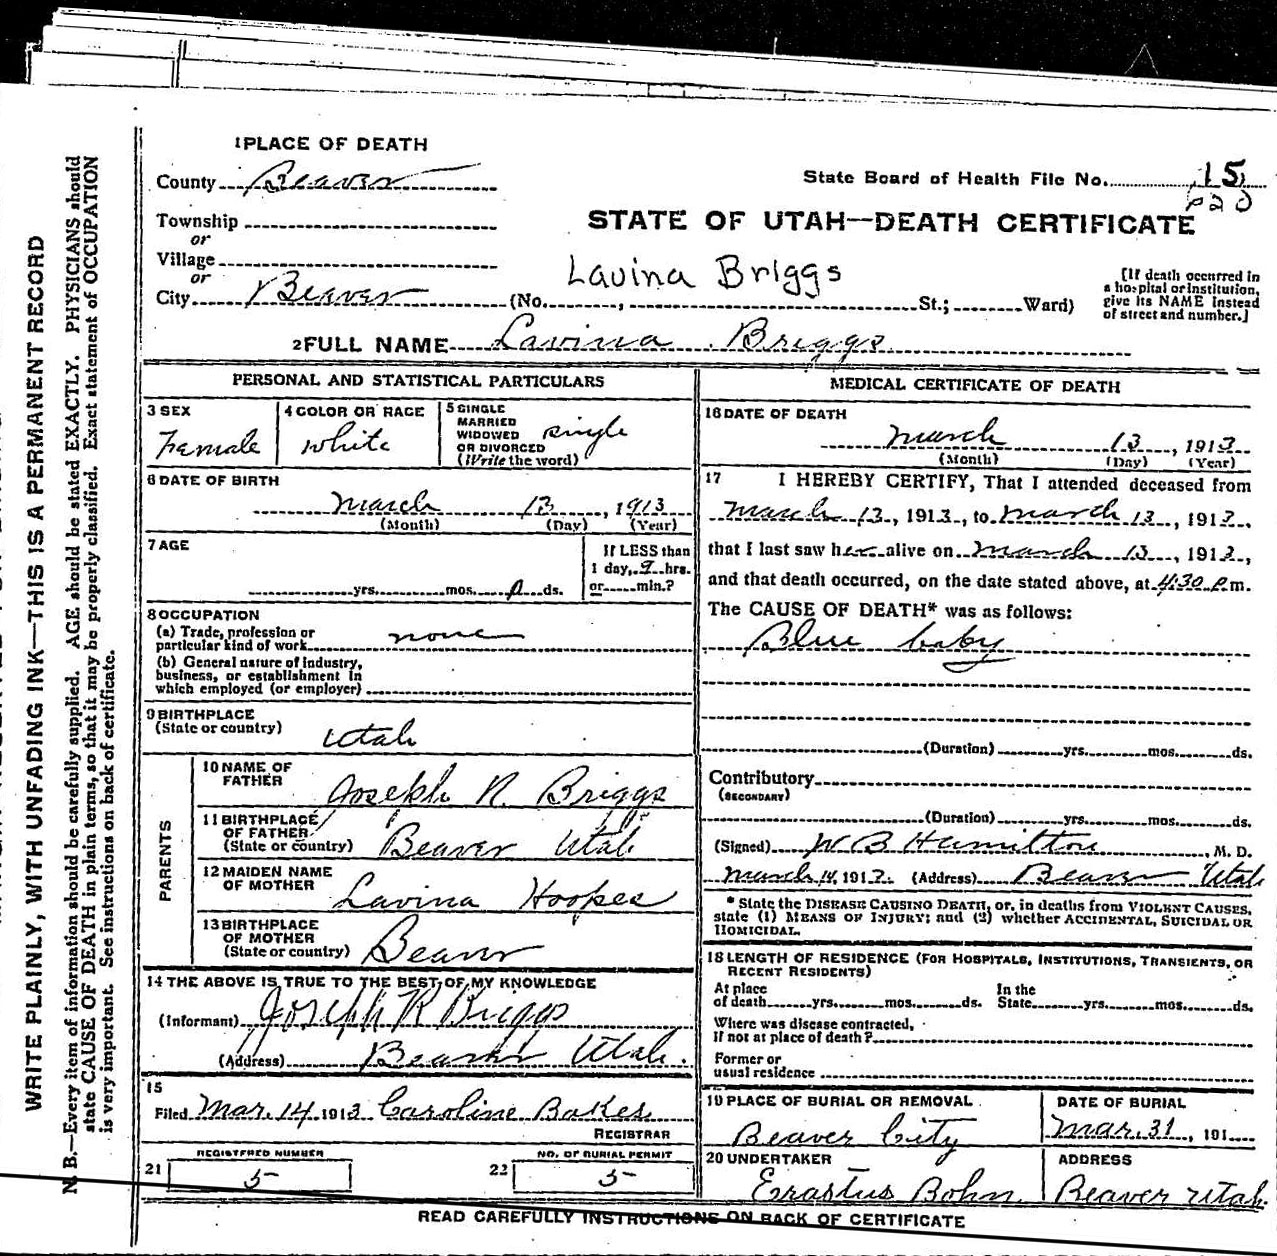 1 PLACE OF DEATH
County Beaver
State Board of Health File No. 15
220
Township
or
Village
or
City Beaver
STATE OF UTAH—DEATH CERTIFICATE
Lavina Briggs
(No. , St.; Ward)
[If death occurred in
a hospital or institution,
give its NAME instead
of street and number.]
2 FULL NAME Lavina Briggs
PERSONAL AND STATISTICAL PARTICULARS
3 SEX
Female
4 COLOR OR RACE
White
5 SINGLE
MARRIED
WIDOWED
OR DIVORCED
(Write the word)
single
6 DATE OF BIRTH
March 13, 1913
(Month) (Day) (Year)
7 AGE
yrs. mos. 0 ds.
If LESS than
1 day, 9 hrs.
or min.?
8 OCCUPATION
(a) Trade, profession or
particular kind of work none
(b) General nature of industry,
business, or establishment in
which employed (or employer)
9 BIRTHPLACE
(State or country) Utah
PARENTS
10 NAME OF
FATHER
Joseph R. Briggs
11 BIRTHPLACE
OF FATHER
(State or country) Beaver Utah
12 MAIDEN NAME
OF MOTHER
Lavina Hoopes
13 BIRTHPLACE
OF MOTHER
(State or country) Beaver
14 THE ABOVE IS TRUE TO THE BEST OF MY KNOWLEDGE
(Informant) Joseph R Briggs
(Address) Beaver Utah.
15
Filed Mar. 14 1913 Caroline Bakes
REGISTRAR
21 REGISTERED NUMBER
5
22 NO. OF BURIAL PERMIT
5
MEDICAL CERTIFICATE OF DEATH
16 DATE OF DEATH
March 13, 1913
(Month) (Day) (Year)
17 I HEREBY CERTIFY, That I attended deceased from
March 13, 1913, to March 13, 1913,
that I last saw her alive on March 13, 1913,
and that death occurred, on the date stated above, at 4:30 p.m.
The CAUSE OF DEATH* was as follows:
Blue baby
(Duration) yrs. mos. ds.
Contributory
(SECONDARY)
(Duration) yrs. mos. ds.
(Signed) W B Hamilton M. D.
March 14, 1913. (Address) Beaver Utah
* State the DISEASE CAUSING DEATH, or, in deaths from VIOLENT CAUSES,
state (1) MEANS OF INJURY; and (2) whether ACCIDENTAL, SUICIDAL OR
HOMICIDAL.
18 LENGTH OF RESIDENCE (FOR HOSPITALS, INSTITUTIONS, TRANSIENTS, OR
RECENT RESIDENTS)
At place
of death yrs. mos. ds.
In the
State yrs. mos. ds.
Where was disease contracted,
if not at place of death?
Former or
usual residence
19 PLACE OF BURIAL OR REMOVAL
Beaver City
DATE OF BURIAL
Mar. 31, 191
20 UNDERTAKER
Erastus Bohn.
ADDRESS
Beaver Utah.
READ CAREFULLY INSTRUCTIONS ON BACK OF CERTIFICATE
WRITE PLAINLY, WITH UNFADING INK—THIS IS A PERMANENT RECORD
N. B.—Every item of information should be carefully supplied. AGE should be stated EXACTLY. PHYSICIANS should
state CAUSE OF DEATH in plain terms, so that it may be properly classified. Exact statement of OCCUPATION
is very important. See instructions on back of certificate.